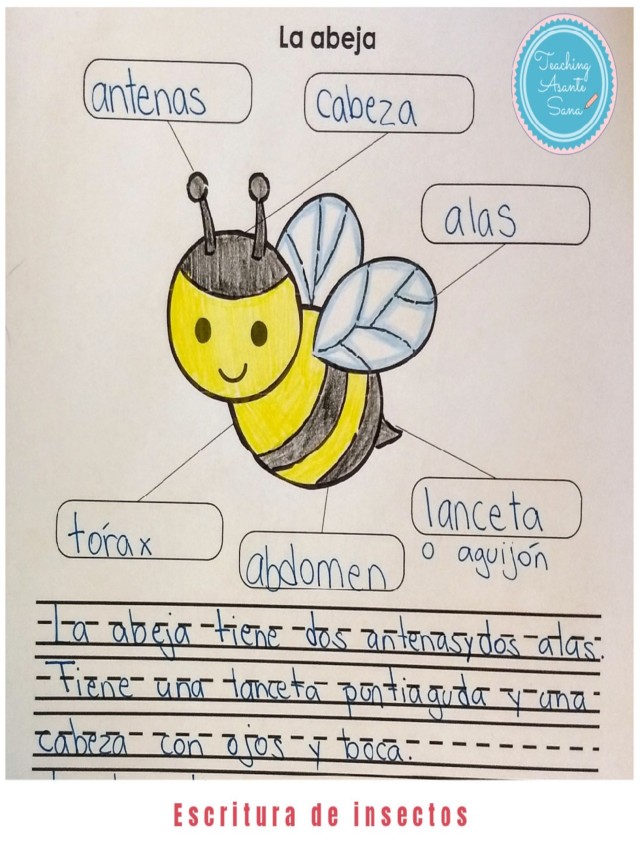 La abeja
Teaching
Asante
Sana
antenas
cabeza
alas
tórax
abdomen
lanceta
o aguijón
La abeja tiene dos antenas y dos alas.
Tiene una lanceta pontiaguda y una
cabeza con ojos y boca.
Escritura de insectos